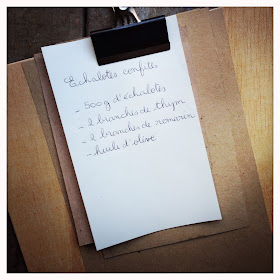 Echalotes confites
- 500g d'échalotes
- 2 branches de thym
- 2 branches de romarin
- huile d'olive